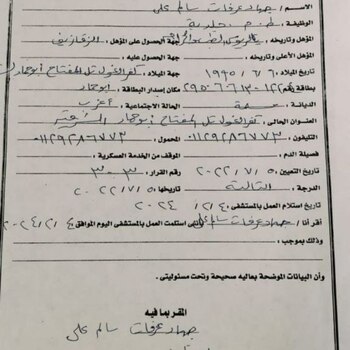 الاسم / جهاد عرفات سالم على
الوظيفة /
المؤهل وتاريخه / بكالوريوس جهة الحصول على المؤهل / الزقازيق
المؤهل الأعلى وتاريخه / جهة الحصول عليه /
تاريخ الميلاد ٦ / ٦ / ١٩٩٥ جهة الميلاد / كفر الغول تل المفتاح أبو حماد
بطاقة رقم / جهة إصدار البطاقة / أبو حماد
الديانة / مسلمة الحالة الاجتماعية / أعزب
العنوان الحالى / كفر الغول تل المفتاح أبو حماد الشرقية
التليفون / ٠١١٢٩٢٨٦٧٧٣ المحمول / ٠١١٢٩٢٨٦٧٧٣
فصيلة الدم / الموقف من الخدمة العسكرية /
تاريخ التعيين ٥ / ٧ / ٢٠٢٢ رقم القرار / ٣٠٣
الدرجة / الثالثة تاريخها ٥ / ٧ / ٢٠٢٢
تاريخ استلام العمل بالمستشفى ٤ / ٢ / ٢٠٢٤
أقر أنا / جهاد عرفات سالم على إننى استلمت العمل بالمستشفى اليوم الموافق ٤ / ٢ / ٢٠٢٤
وذلك بموجب :
وأن البيانات الموضحة بعاليه صحيحة وتحت مسئوليتى .
المقر بما فيه
جهاد عرفات سالم على